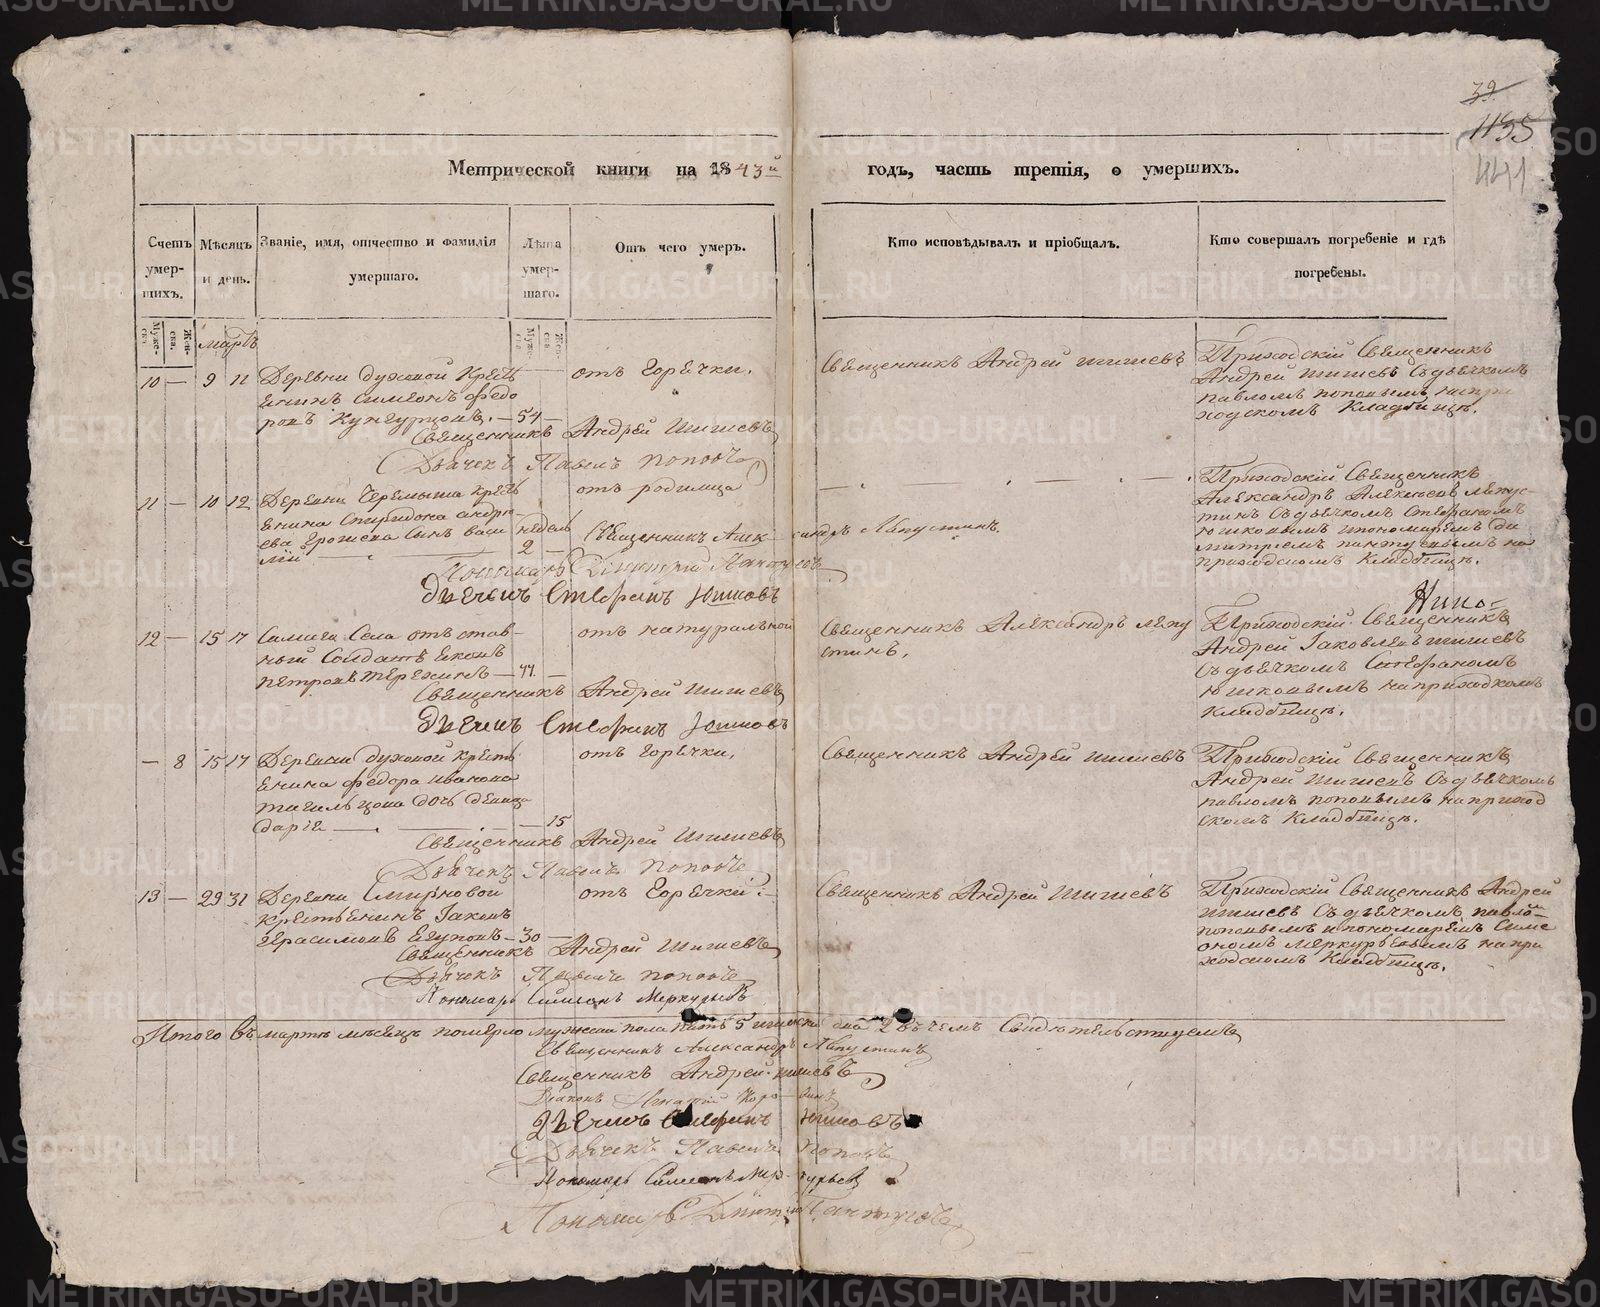 39.
1155
441
Метрической книги на 1843й годъ, часть третія, о умершихъ.
Счетъ умершихъ.
Мѣсяцъ и день.
Званіе, имя, отчество и фамилія умершаго.
Лѣта умершаго.
Отъ чего умеръ.
Кто исповѣдывалъ и пріобщалъ.
Кто совершалъ погребеніе и гдѣ погребены.
Мартъ
10 — 9 11 Деревни Духовой Кресть
янинъ Симеонъ Федо
ровъ Кунгурцовъ. — 54 —
отъ Горячки.
Священникъ Андрей Шишевъ
Приходскій Священникъ
Андрей Шишевъ Съ дьячкомъ
павломъ поповымъ на при
ходскомъ Кладбищѣ.
Священникъ Андрей Шишевъ
Дьячекъ Павелъ Поповъ
11 — 10 12 Деревни Черемыша Кресть
янина Спиридона андре
ева Ерошева Сынъ Васи
лій недель
2 —
отъ родимца
Приходскій Священникъ
Александръ Алексѣевъ Лепус-
тинъ Съ дьячкомъ Стефаномъ
Юшковымъ и пономаремъ Ди
митріемъ пантуевымъ на
приходскомъ Кладбищѣ.
Священникъ Александръ Лепустинъ.
Пономарь Димитрій Пантуевъ
Дьячекъ Стефанъ Юшковъ
12 — 15 17 Самаго Села отъ став-
ной Солдатъ Яковъ
петровъ Терехинъ — 77 —
отъ натуральной
Священникъ Александръ Лепу
стинъ.
Приходскій Священникъ
Андрей Іаковлевъ Шишевъ
Съ дьячкомъ Стефаномъ
Юшковымъ на приходскомъ
Кладбищѣ.
Священникъ Андрей Шишевъ
Дьячекъ Стефанъ Юшковъ
— 8 15 17 Деревни Духовой Кресть
янина Федора Иванова
Тагильцова дочь девица
Дарія — 15
отъ Горячки.
Священникъ Андрей Шишевъ
Приходскій Священникъ
Андрей Шишевъ Съ дьячкомъ
павломъ поповымъ на приход
скомъ Кладбищѣ.
Священникъ Андрей Шишевъ
Дьячекъ Павелъ Поповъ
13 — 29 31 Деревни Смирновой
Крестьянинъ Іаковъ
Герасимовъ Егуновъ — 30 —
отъ Горячки.
Священникъ Андрей Шишевъ
Приходскій Священникъ Андрей
Шишевъ Съ дьячкомъ павло-
поповымъ и пономаремъ Симе
ономъ Меркурьевымъ на при
ходскомъ Кладбищѣ.
Священникъ Андрей Шишевъ
Дьячекъ Павелъ Поповъ
Пономарь Симеонъ Меркурьевъ
Итого въ мартѣ мѣсяцѣ померло мужеска пола пять 5 и женска два 2 въ чемъ Свидѣтельствуемъ
Священникъ Александръ Лепустинъ
Священникъ Андрей Шишевъ
Діаконъ
Дьячекъ Стефанъ Юшковъ
Дьячекъ Павелъ Поповъ
Пономарь Симеонъ Меркурьевъ
Пономарь Димитрій Пантуевъ
METRIKI.GASO-URAL.RU